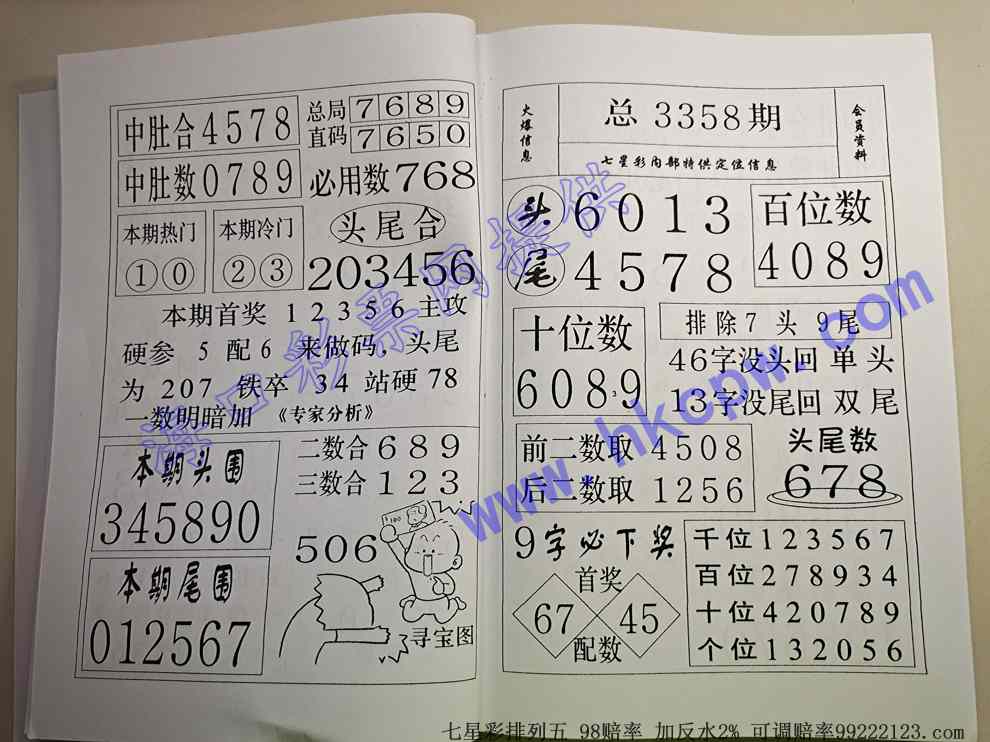 中肚合4578
中肚数0789
总局 7689
直码 7650
必用数768
本期热门
①⓪
本期冷门
②③
头尾合
203456
本期首奖 12356 主攻
硬参 5 配 6 来做码,头尾
为 207 铁卒 34 站硬 78
一数明暗加 《专家分析》
本期头围
345890
本期尾围
012567
二数合 689
三数合 123
506
100
寻宝图
火爆信息
总 3358期
七星彩内部特供定位信息
会员资料
头 6013
尾 4578
百位数
4089
十位数
6089
3
排除7 头 9尾
46字没头回 单 头
13字没尾回 双 尾
前二数取 4508
后二数取 1256
头尾数
678
9字必下奖
首奖
67 45
配数
千位123567
百位278934
十位420789
个位132056
海口彩票网提供
www.hkcpw.com
七星彩排列五 98赔率 加反水2% 可调赔率99222123.com